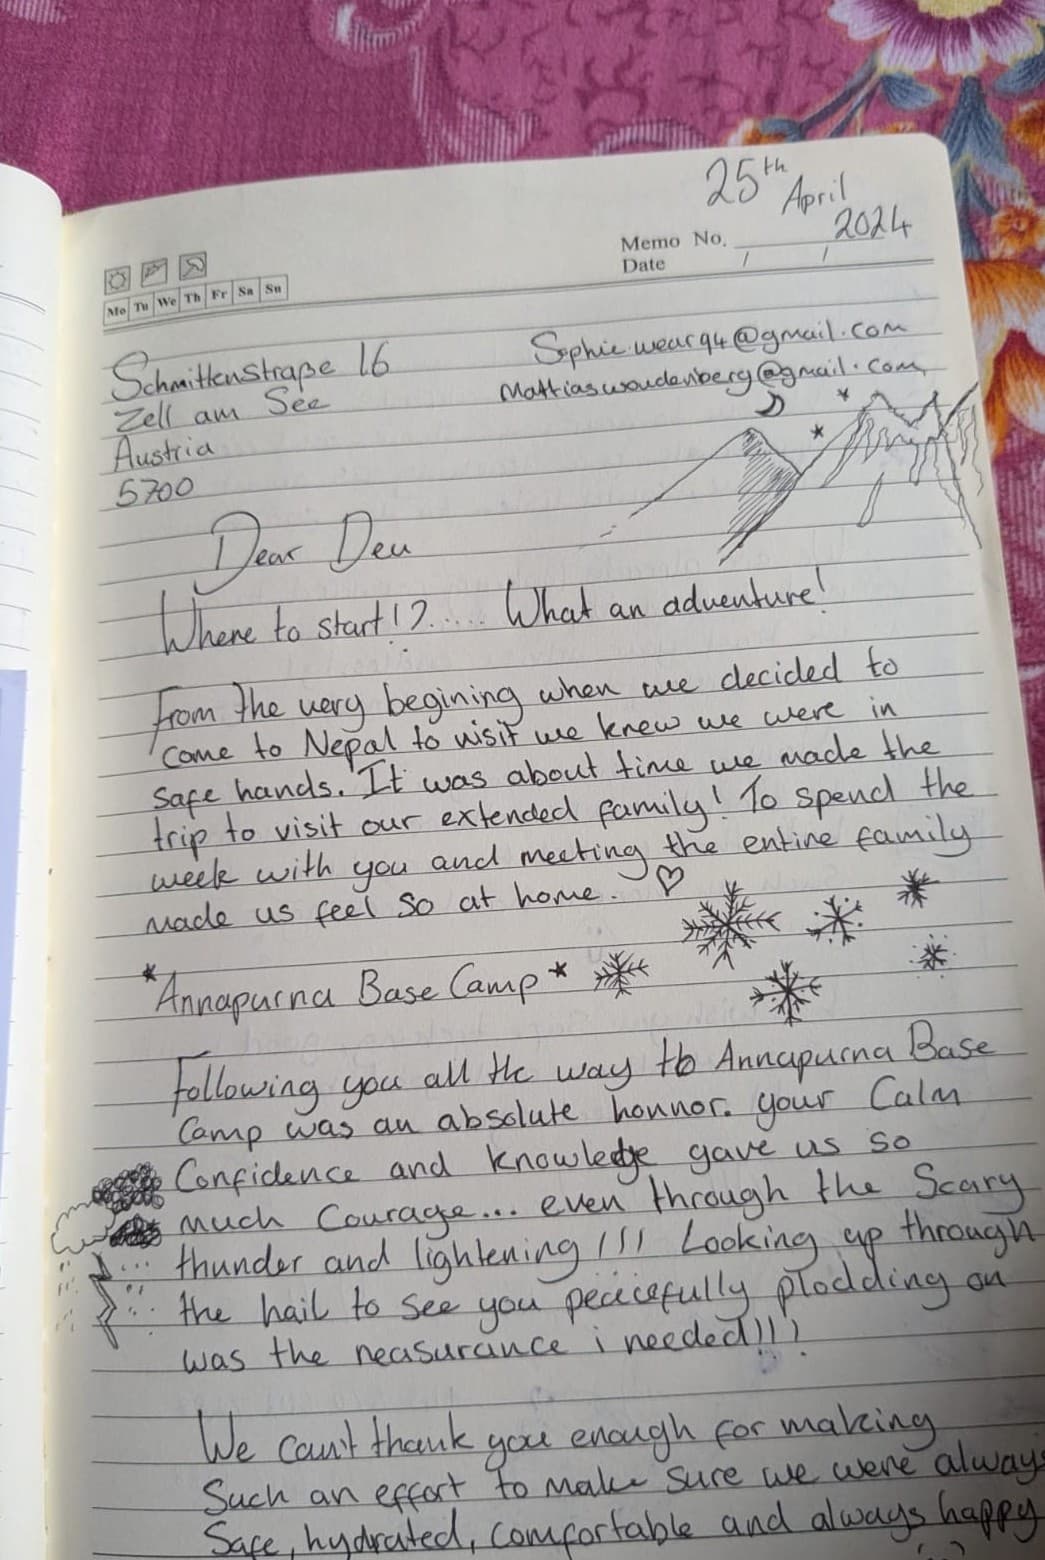 25th April 2024
Memo No.
Date / /
Mo Tu We Th Fr Sa Su
Schmittenstraße 16
Zell am See
Austria
5700
Sophie.wear94@gmail.com
Mattiaswoudenberg@gmail.com
Dear Deu
Where to start!?..... What an adventure!
From the very begining when we decided to
come to Nepal to visit we knew we were in
safe hands. It was about time we made the
trip to visit our extended family! To spend the
week with you and meeting the entire family
made us feel so at home. ♡
*Annapurna Base Camp*
Following you all the way to Annapurna Base
Camp was an absolute honnor. your Calm
Confidence and knowledge gave us so
much Courage... even through the Scary
thunder and lightening!!! Looking up through
the hail to see you peacefully plodding on
was the reasurance i needed!!!
We can't thank you enough for making
Such an effort to make sure we were always
Safe, hydrated, comfortable and always happy